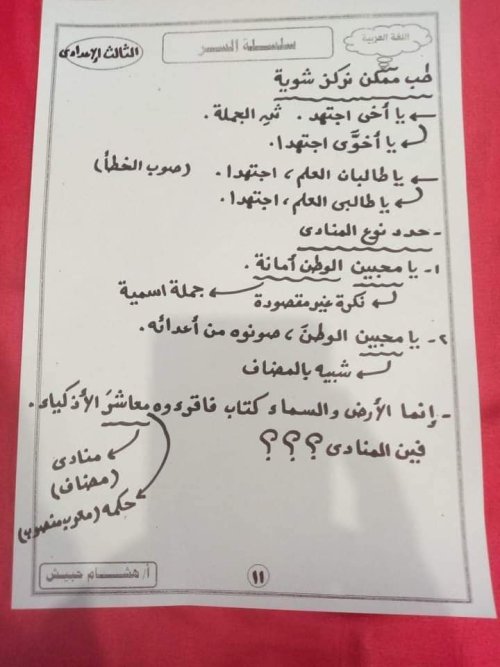 اللغة العربية
سلسلة النسر
الثالث الإعدادى
طب ممكن نركز شوية
يا أخى اجتهد . ثنِّ الجملة .
يا أخوَّى اجتهدا.
يا طالبان العلم، اجتهدا. (صوب الخطأ)
يا طالبى العلم، اجتهدا.
- حدد نوع المنادى
١- يا محبين الوطن أمانة .
نكرة غير مقصودة جملة اسمية
٢- يا محبين الوطنَ، صونوه من أعدائه.
شبيه بالمضاف
- إنما الأرض والسماء كتاب فاقرءوه معاشرَ الأذكياء.
فين المنادى ؟ ؟ ؟
منادى
(مضاف)
حكمه (معرب منصوب)
١١
أ/ هشام حبيش